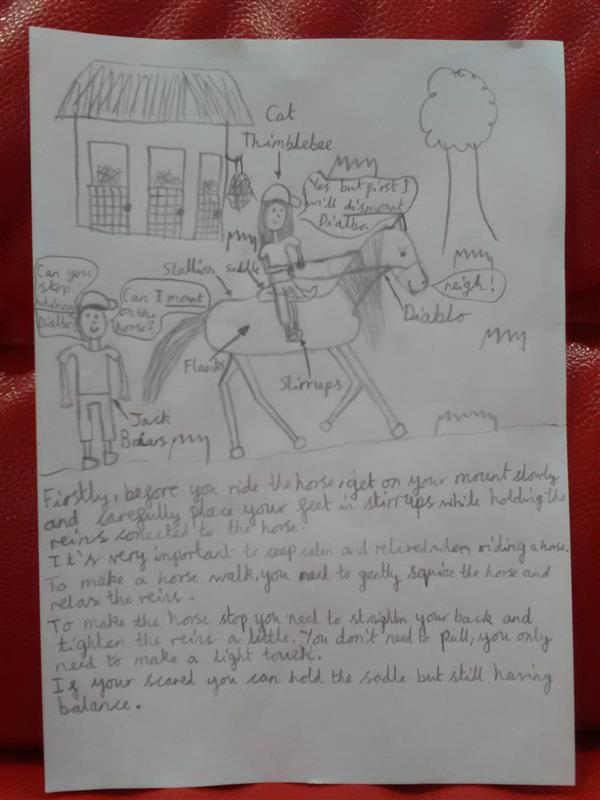 Cat
Thimblebee
Yes but first I
will dismount
Dialbo.
Stallion saddle
Can you
stop
whinnying
Dialbo?
Can I mount
on the
horse?
neigh!
Diablo
Flanks
Stirrups
Jack
Briars
Firstly, before you ride the horse, get on your mount slowly
and carefully place your feet in stirrups while holding the
reins conected to the horse.
It's very important to keep calm and relaxed when riding a horse.
To make a horse walk, you need to gently squize the horse and
relax the reins.
To make the horse stop you need to straighten your back and
tighten the reins a little. You don't need to pull, you only
need to make a light touch.
If your scared you can hold the sadle but still having
balance.